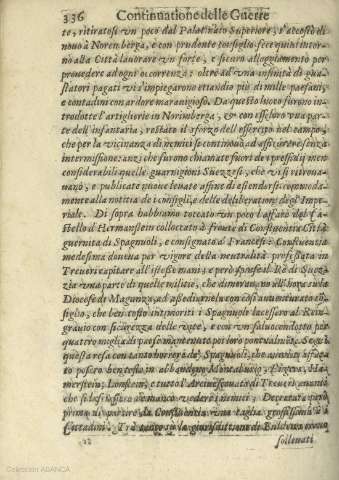 336 Continuatione delle Guerre
to, ritiratosi un poco dal Palatinato Superiore, s'accostò di
nuovo à Noremberga, e con prudente consiglio fece quivi intor-
no alla Città lavorare un forte, e sicuro alloggiamento per
provedere ad ogni occorrenza: oltre ad una infinità di gua-
statori pagati vi s'impiegarono etiandio più di mille paesani,
e contadini con ardore maraviglioso. Da questo luoco furono in-
trodotte l'artiglierie in Norimberga, & con esse loro una par-
te dell'infantaria, restato il sforzo dell'essercito nel campo,
che per la vicinanza di nemici si continuò ad assicurare senza
intermissione: anzi che furono chiamate fuori de i presidij men
considerabili quelle guarnigioni Suezzesi, che vi si ritrova-
vano, e publicate nuove levate affine di estendersi commoda-
mente alla notitia de i consigli, e delle deliberationi degl'Impe-
riale. Di sopra habbiamo toccato un poco l'affare del Ca-
stello d'Hermanstein collocato à fronte di Confluentia Città
guernita de Spagnuoli, e consignato a Francesi: Confluentia
medesima doveva per vigore della neutralità professata in
Treveri capitare all'istesse mani; e però spinse il Rè di Suez-
zia una parte di quelle militie, che dimoravano all'hora su la
Diocese di Magonza, ad assediarla con così avventurato con-
siglio, che ben tosto astinti i Spagnuoli lacessero al Rein-
gravio con sicurezza delle vite, e con un salvocondotto per
quattro miglia di paese mantenuto poi loro pontualmente. Seguì
questa resa con tanto horrore de' Spagnuoli, che
posero ben tosto in abbandono Montabaur, Ha-
merstein, Lonstein, e tutto l'Arcivescovato di Treveri
prima di partire da Confluentia una taglia grossissima à
Cittadini. Tra tanto la giurisdittione di
sollevati